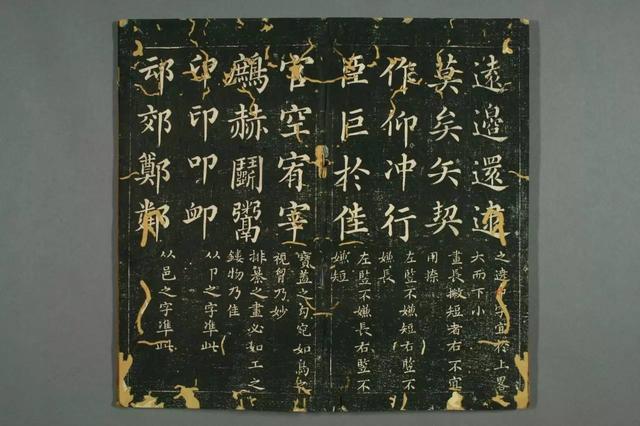 遠邊還逮
之字宜於上畧
大而下小
莫矣矢契
畫長撇短者右不宜
用捺
作仰冲行
左竪不嫌短右竪不
嫌長
臣巨於佳
左竪不嫌長右竪不
嫌短
官空宥宰
寶蓋之勾宛如鳥
視胷乃妙
赫鬭鬻
排纍之畫必如工之
鏤物乃佳
卯印叩卹
从卩之字凖此
邙郊鄭鄰
从邑之字凖此